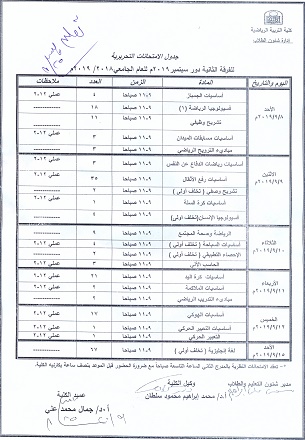 كلية التربية الرياضية
إدارة شئون الطلاب
جدول الامتحانات التحريرية
للفرقة الثانية دور سبتمبر ٢٠١٩م للعام الجامعى ٢٠١٨/ ٢٠١٩م
اليوم والتاريخ المادة الزمن العدد ملاحظات
الأحد ٢٠١٩/٩/٨م
أساسيات الجمباز ٩-١١ صباحا ٤ عملي ٢٠١٢
فسيولوجيا الرياضة (١) ٩-١١ صباحا ١٨
تشريح وظيفي ٩-١١ صباحا ١١
أساسيات مسابقات الميدان ٩-١١ صباحا ٣
مبادىء الترويح الرياضي ٩-١١ صباحا ٣
الاثنين ٢٠١٩/٩/٩م
أساسيات رياضات الدفاع عن النفس ٩-١١ صباحا
أساسيات رفع الأثقال ٩-١١ صباحا ٣٥ عملي ٢٠١٢
تشريح وصفي ( تخلف أولى ) ٩-١١ صباحا
أساسيات كرة السلة ٩-١١ صباحا
فسيولوجيا الإنسان(تخلف أولى) ٩-١١ صباحا
الثلاثاء ٢٠١٩/٩/١٠م
الرياضة وصحة المجتمع ٩-١١ صباحا ٩
أساسيات السباحة ( تخلف أولى ) ٩-١١ صباحا
الإحصاء التطبيقي ( تخلف أولى ) ٩-١١ صباحا
الحاسب الآلي ٩-١١ صباحا
الأربعاء ٢٠١٩/٩/١١م
أساسيات كرة اليد ٩-١١ صباحا ٢١ عملي ٢٠١٢
أساسيات الملاكمة ٩-١١ صباحا
مبادىء التدريب الرياضي ٩-١١ صباحا
الخميس ٢٠١٩/٩/١٢م
أساسيات الهوكي ٩-١١ صباحا ٢٧ عملي ٢٠١٢
أساسيات التعبير الحركي ٩-١١ صباحا
التعبير الحركي ٩-١١ صباحا
الأحد ٢٠١٩/٩/١٥م
لغة إنجليزية ( تخلف أولى ) ٩-١١ صباحا ٦٧
تعقد الإمتحانات النظرية بالمدرج الثاني الساعة التاسعة صباحا مع ضرورة الحضور قبل الموعد بنصف ساعة بكارنيه الكلية.
مدير شئون التعليم والطلاب
وكيل الكلية
أ.د/ محمد إبراهيم محمود سلطان
عميد الكلية
أ.د/ جمال محمد على